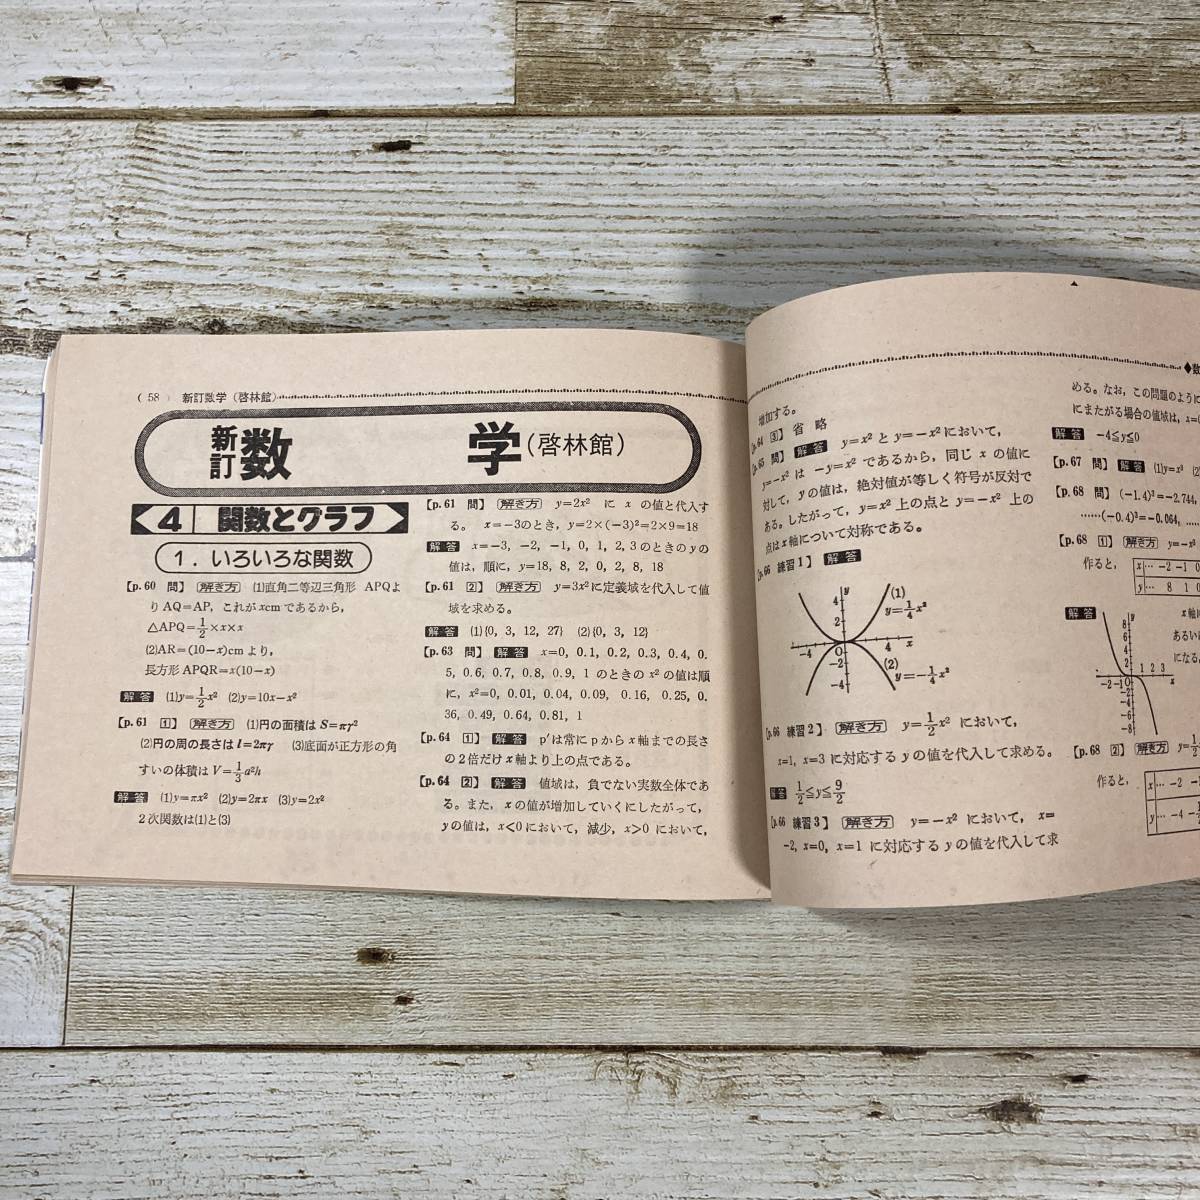 ( 58 ) 新訂数学 (啓林館)
新訂 数 学 (啓林館)
4 関数とグラフ
1. いろいろな関数
[p. 60 問] 解き方 (1)直角二等辺三角形 APQよ
りAQ=AP, これがxcmであるから,
△APQ=1/2×x×x
(2)AR=(10-x)cmより,
長方形APQR=x(10-x)
解答 (1)y=1/2x² (2)y=10x-x²
[p. 61 1] 解き方 (1)円の面積は S=πr²
(2)円の周の長さは l=2πr (3)底面が正方形の角
すいの体積は V=1/3a²h
解答 (1)y=πx² (2)y=2πx (3)y=2x²
2次関数は(1)と(3)
[p. 61 問] 解き方 y=2x² に x の値と代入す
る。 x=-3のとき, y=2×(-3)²=2×9=18
解答 x=-3, -2, -1, 0, 1, 2, 3のときのyの
値は, 順に, y=18, 8, 2, 0, 2, 8, 18
[p. 61 2] 解き方 y=3x²に定義域を代入して値
域を求める。
解答 (1){0, 3, 12, 27} (2){0, 3, 12}
[p. 63 問] 解答 x=0, 0.1, 0.2, 0.3, 0.4, 0.
5, 0.6, 0.7, 0.8, 0.9, 1 のときの x² の値は順
に, x²=0, 0.01, 0.04, 0.09, 0.16, 0.25, 0.
36, 0.49, 0.64, 0.81, 1
[p. 64 1] 解答 p'は常に p から x 軸までの長さ
の2倍だけ x 軸より上の点である。
[p. 64 2] 解答 値域は, 負でない実数全体であ
る。また, x の値が増加していくにしたがって,
yの値は, x<0において, 減少, x>0 において,
◆数
増加する。
[p. 64 3] 省 略
[p. 65 問] 解答 y=x² と y=-x² において,
y=-x² は -y=x² であるから, 同じ x の値に
対して, y の値は, 絶対値が等しく符号が反対で
ある。したがって, y=x² 上の点と y=-x² 上の
点は x 軸について対称である。
[p. 66 練習1] 解答
y
4
2
-4
0
4
x
-2
-4
(1)
y=1/4x²
(2)
y=-1/4x²
[p. 66 練習2] 解き方 y=1/2x² において,
x=1, x=3 に対応する y の値を代入して求める。
解答 1/2≦y≦9/2
[p. 66 練習3] 解き方 y=-x² において, x=
-2, x=0, x=1 に対応する y の値を代入して求
める。なお, この問題のように
にまたがる場合の値域は, x=
解答 -4≦y≦0
[p. 67 問] 解答 (1)y=x³
[p. 68 問] (-1.4)³=-2.744,
……(-0.4)³=-0.064, …
[p. 68 1] 解き方 y=-x³
作ると,
x … -2 -1 0
y … 8 1 0
解答
x 軸に
あるい
になる
8
6
4
2
y
-2 -1 0 1 2 3
x
-2
-4
-6
-8
[p. 68 2] 解き方 y=1/2
作ると,
x … -2
y … -4